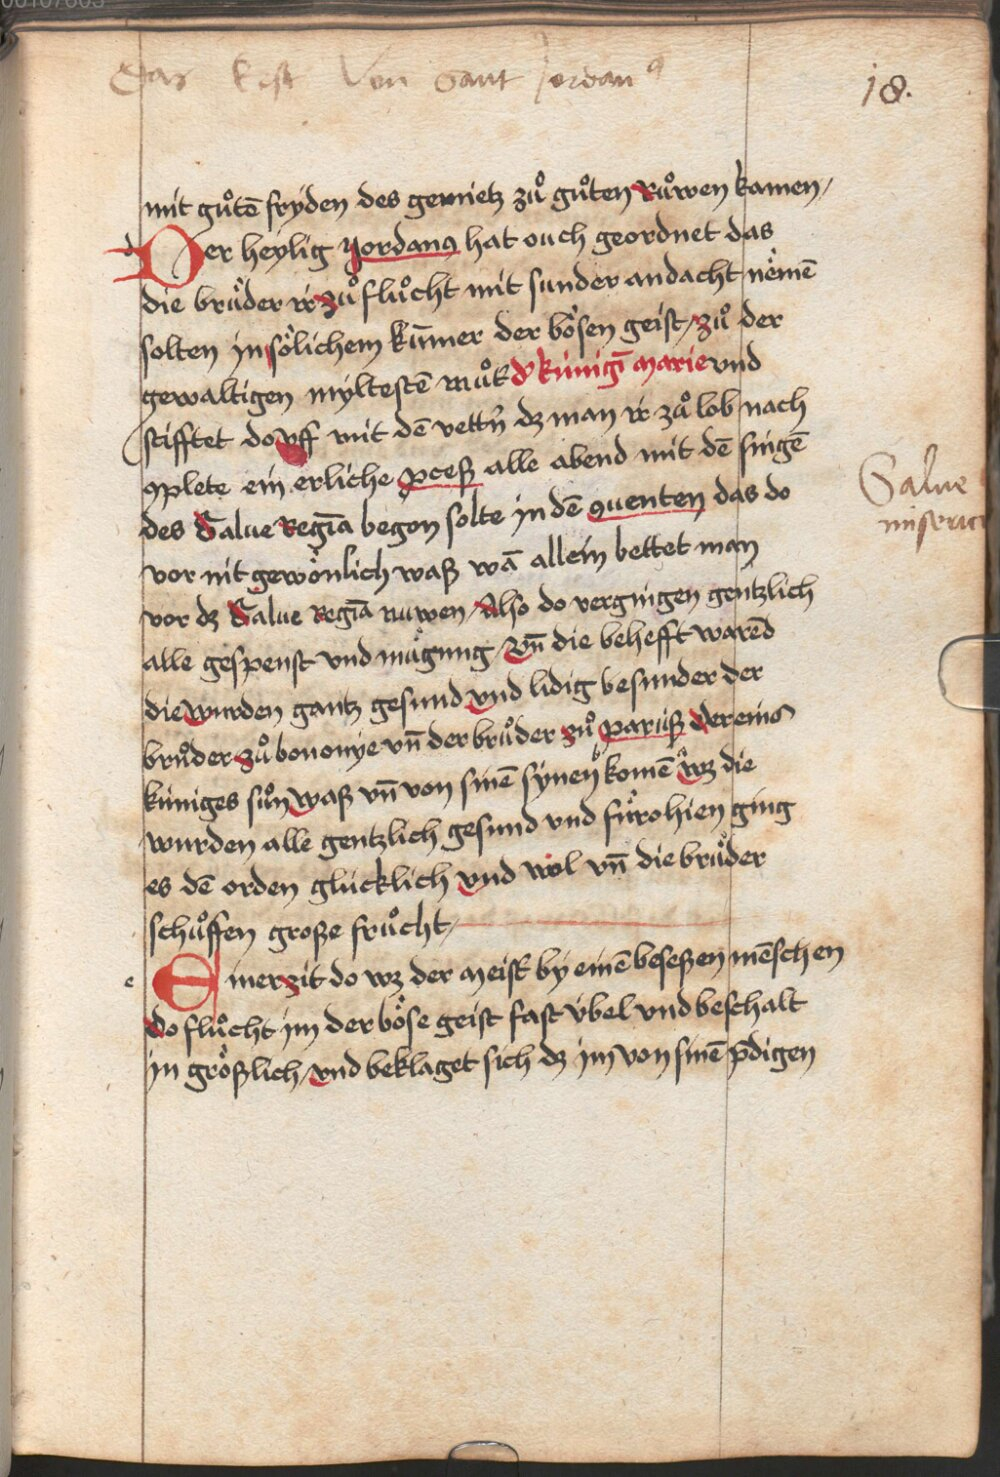 Das kost Von sant Jordanꝰ
18.
mit gůtē fryden des gemietz zů gůten Růwen kamen /
d
Der heylig Yordanꝰ hat ouch geordnet das
die brůder ir zů flůcht mit sunder andacht nēmē
solten jn sölichem kūmer der bösen geist / zů der
gewaltigen myltestē můt͛ d͛ künigī Marie vnd
stifftet do vff mit dē vettn̄ dz man ir zů lob nach
ꝯplete ein erliche ꝓceß alle abend mit dē singē
des Salue Regīa begon solte jn dē ꝯuenten das do
vor nit gewönlich waß wā allein bettet man
vor dz Salue Regīa nuwen / Also do vergingen gentzlich
alle gespenst vnd mügung / Vn̄ die behefft warēd
die wurden gantz gesund vnd lidig besunder der
brůder zů bononye vn̄ der brůder zů pariß der eins
küniges sůn waß vn̄ von sinē synen komē wz die
wurden alle gentzlich gesund vnd fürohien ging
es dē orden glücklich vnd wol vn̄ die brůder
schůffen große frůcht /
Salue
miserico
e
Einer zit do wz der meist͛ by einē beseßen mēschen
do flůcht im der böse geist fast übel vnd beschalt
in größlich / vnd beklaget sich dz im von sinē p̄digen